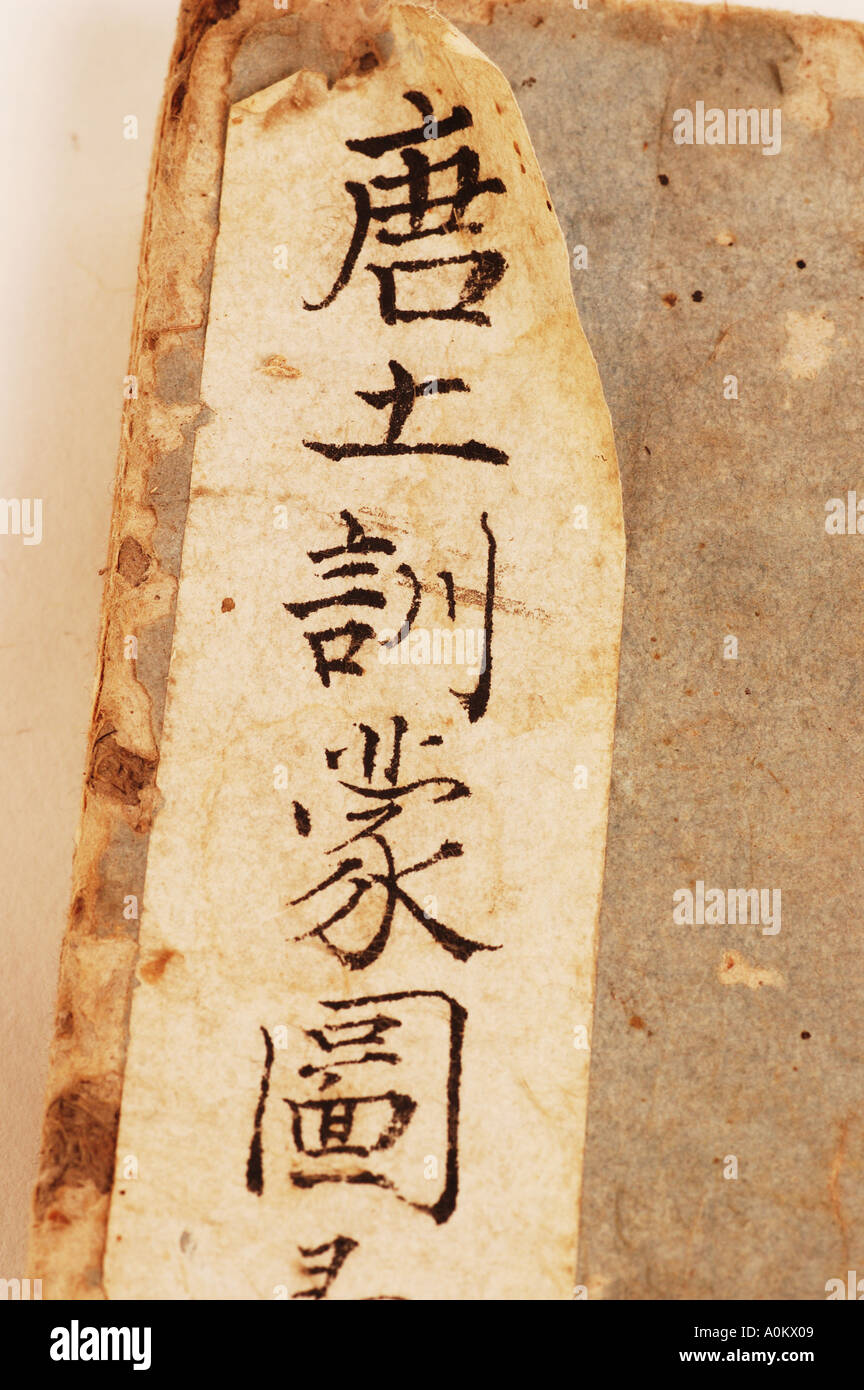 唐土訓蒙圖
alamy
Image ID: A0KX09
www.alamy.com